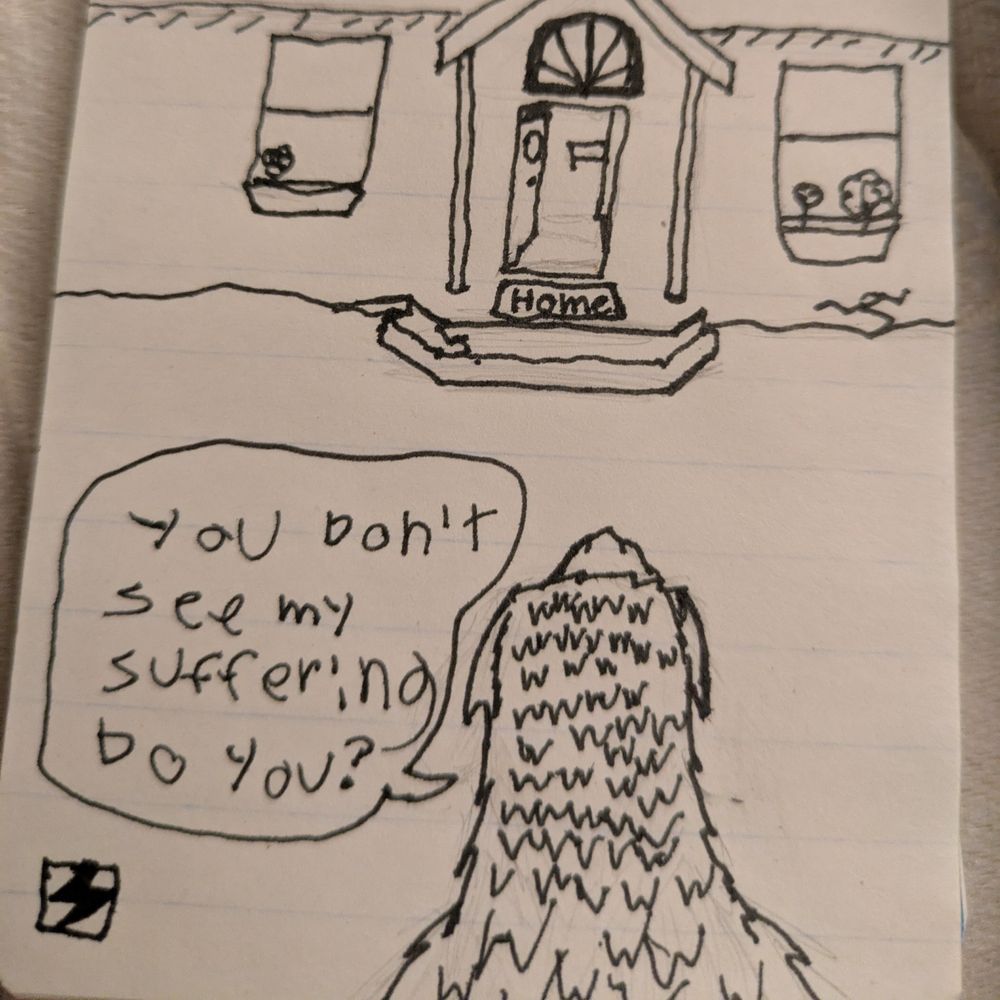 Home
You Don't
see my
suffering
Do you?